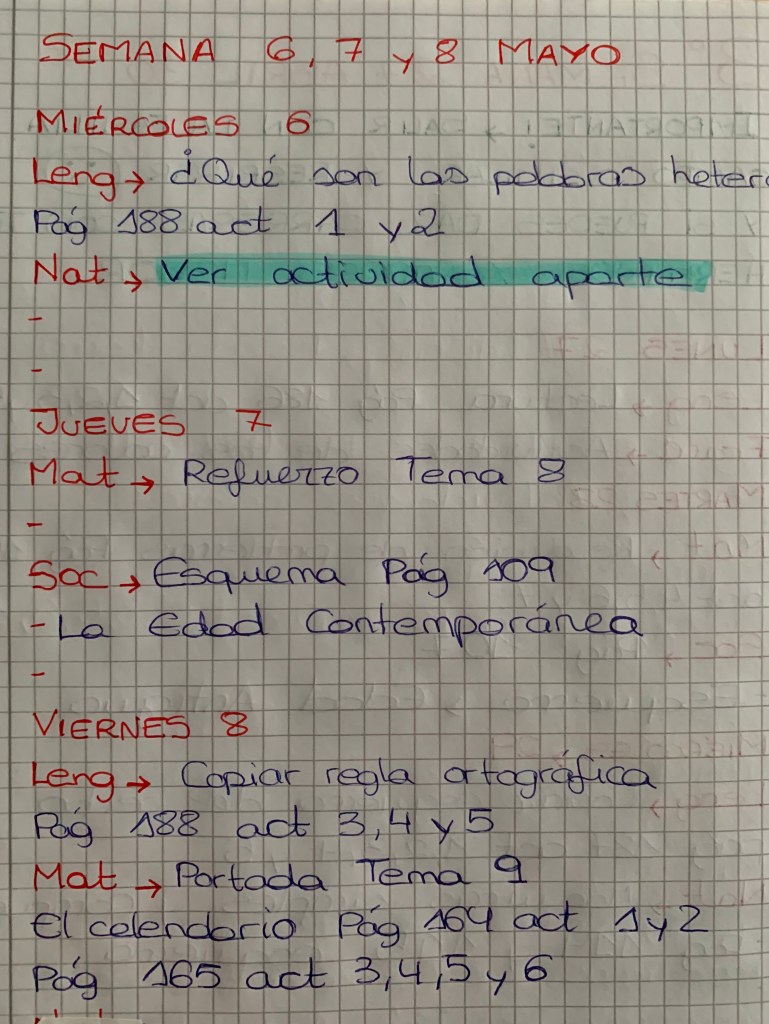 SEMANA 6, 7 y 8 MAYO
MIÉRCOLES 6
Leng → ¿Qué son las palabras
Pág 188 act 1 y 2
Nat → Ver actividad aparte
-
-
JUEVES 7
Mat → Refuerzo Tema 8
-
Soc → Esquema Pág 109
- La Edad Contemporánea
-
VIERNES 8
Leng → Copiar regla ortográfica
Pág 188 act 3, 4 y 5
Mat → Portada Tema 9
El celendario Pág 164 act 1 y 2
Pág 165 act 3, 4, 5 y 6